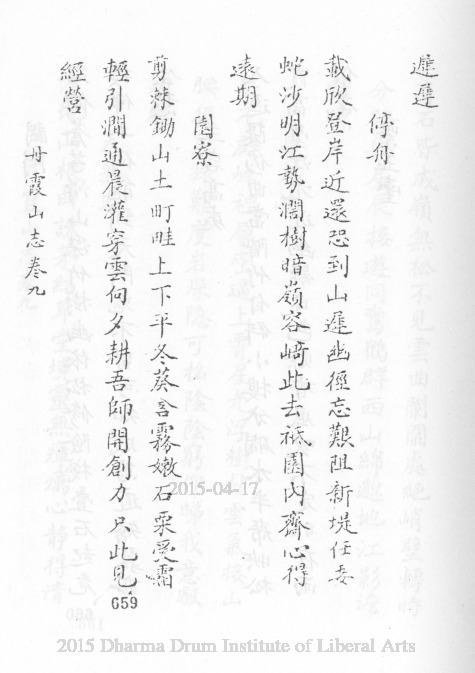 遲遲
停舟
載欣登岸近還恐到山遲幽徑忘艱阻新堤任委
蛇沙明江勢濶樹暗嶺容﨑此去祗園內齋心得
遠期
園寮
剪棘鋤山土町畦上下平冬葵含霧嫩石栗受霜
輕引澗通晨灌穿雲向夕耕吾師開創力只此見
經營
丹霞山志卷九
659
2015-04-17
2015 Dharma Drum Institute of Liberal Arts